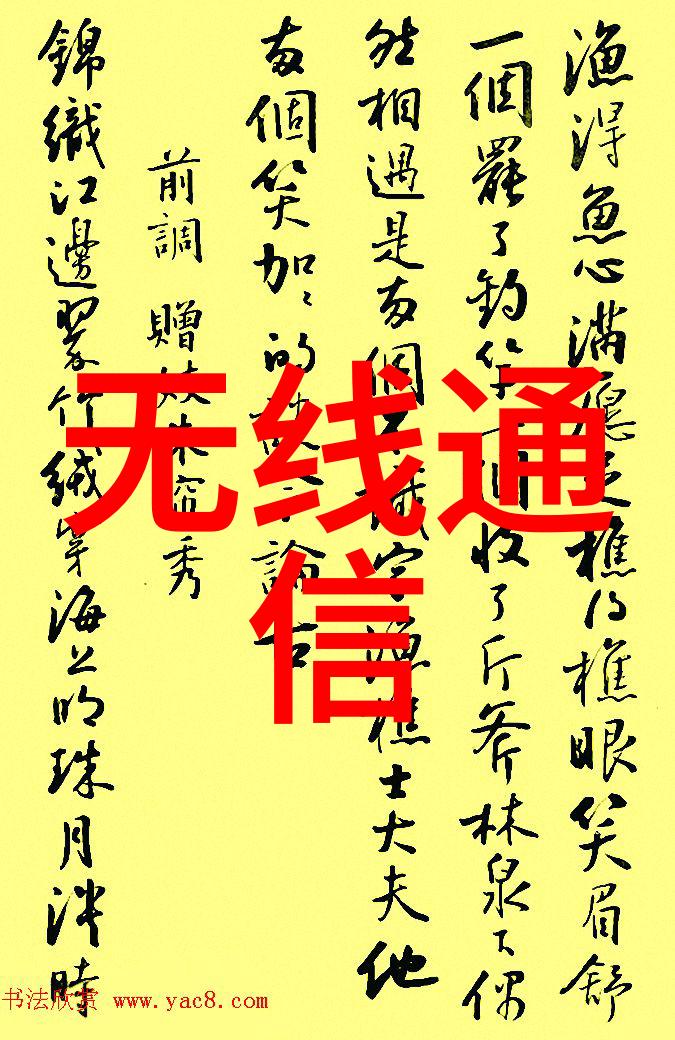 漁得魚心滿愿足樵得樵眼笑眉舒
一個罷了釣竿一個收了斤斧林泉下偶
然相遇是兩個不識字漁樵士大夫他
兩個笑加加的談今論古
前調 贈妓朱帘秀
錦織江邊翠竹絨穿海上明珠月淡時
无线通
信
书法欣赏 www.yac8.com